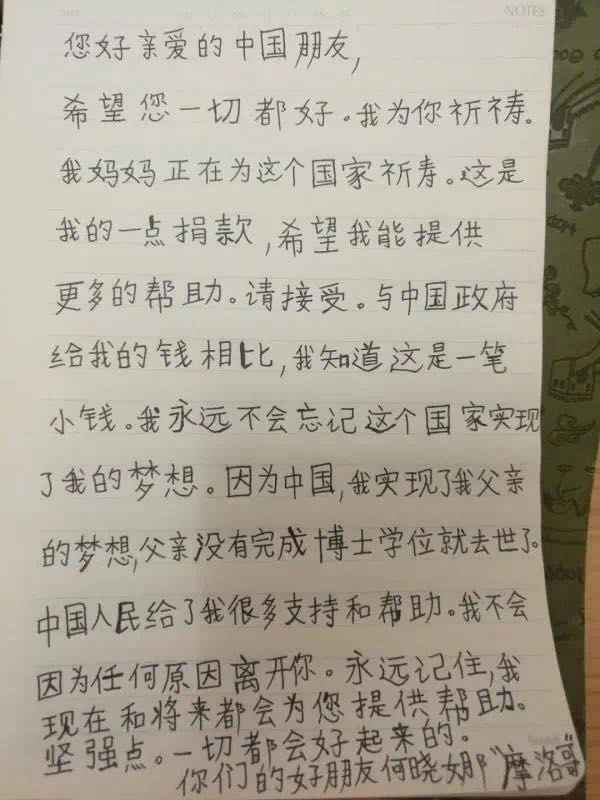 NOTES
您好亲爱的中国朋友,
希望您一切都好。我为你祈祷。
我妈妈正在为这个国家祈寿。这是
我的一点捐款,希望我能提供
更多的帮助。请接受。与中国政府
给我的钱相比,我知道这是一笔
小钱。我永远不会忘记这个国家实现
了我的梦想。因为中国,我实现了我父亲
的梦想,父亲没有完成博士学位就去世了。
中国人民给了我很多支持和帮助。我不会
因为任何原因离开你。永远记住,我
现在和将来都会为您提供帮助。
坚强点。一切都会好起来的。
你们的好朋友何晓娜"摩洛哥"